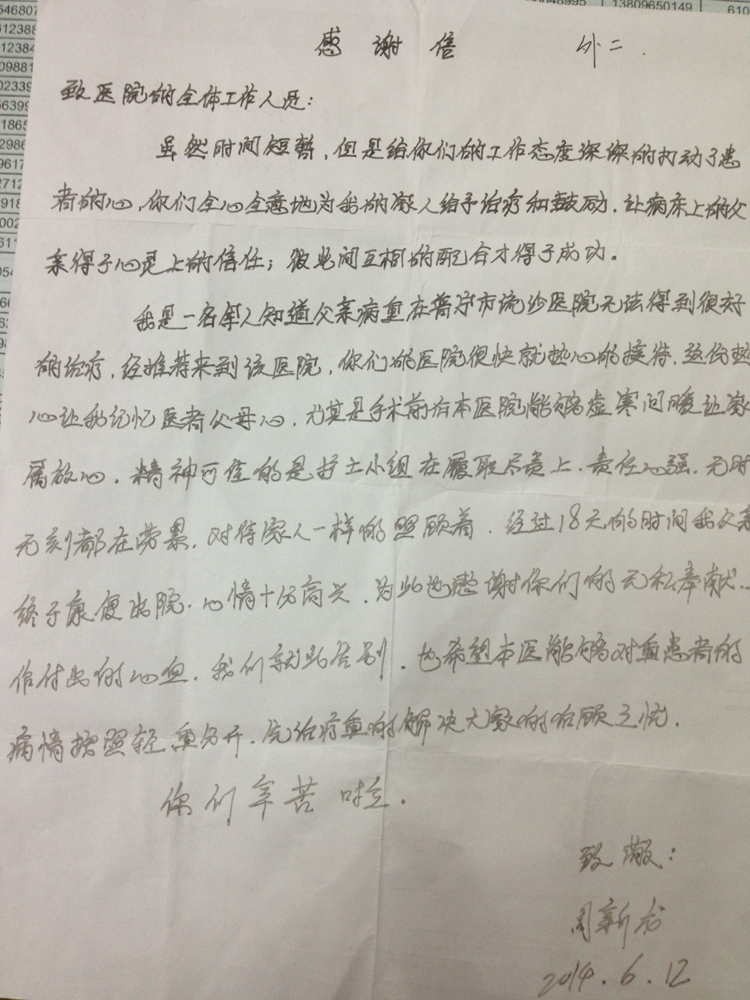 13809650149
610
感谢信 外二.
致医院的全体工作人员:
虽然时间短暂,但是给你们的工作态度深深的打动了患
者的心,你们全心全意地为我的家人给予治疗和鼓励.让病床上的父
亲得予心灵上的信任;彼此间互相的配合才得予成功。
我是一名军人知道父亲病重在普宁市流沙医院无法得到很好
的治疗.经推荐来到该医院,你们的医院很快就热心的接待.这份热
心让我记忆医者父母心.尤其是手术前后本医院能够虚寒问暖让家
属放心.精神可佳的是护士小组在履职尽责上.责任心强.无时
无刻都在劳累.对待家人一样的照顾着.经过18天的时间我父亲
终于康复出院.心情十分高兴.为此也感谢你们的无私奉献..
作付出的心血.我们就此告别.也希望本医能够对重患者的
病情按照轻重分开.先治疗重的解决大家的后顾之忧.
你们辛苦啦.
致敬:
周新龙
2014.6.12